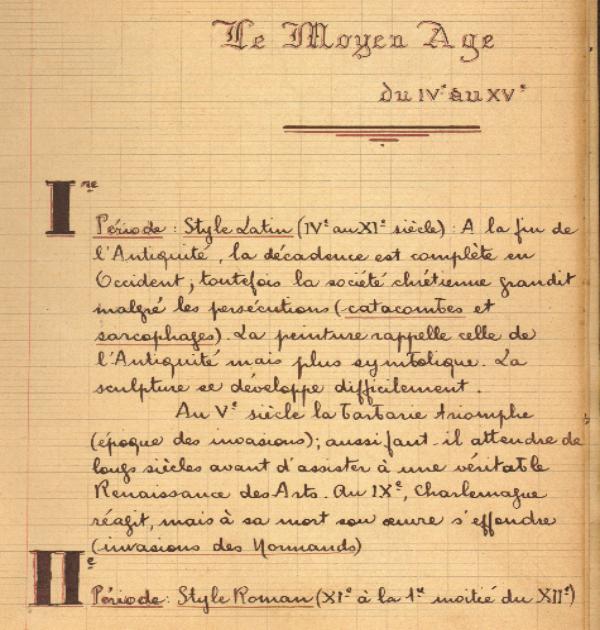 Le Moyen Age
du IVe au XVe
Ire
Période : Style Latin (IVe au XIe siècle) : A la fin de
l'Antiquité, la décadence est complète en
Occident ; toutefois la société chrétienne grandit
malgré les persécutions (catacombes et
sarcophages). La peinture rappelle celle de
l'Antiquité mais plus symbolique. La
sculpture se développe difficilement.
Au Ve siècle la barbarie triomphe
(époque des invasions) ; aussi faut-il attendre de
longs siècles avant d'assister à une véritable
Renaissance des Arts. Au IXe, Charlemagne
réagit, mais à sa mort son œuvre s'effondre
(invasions des Normands)
IIe
Période : Style Roman (XIe à la 1re moitié du XIIe)